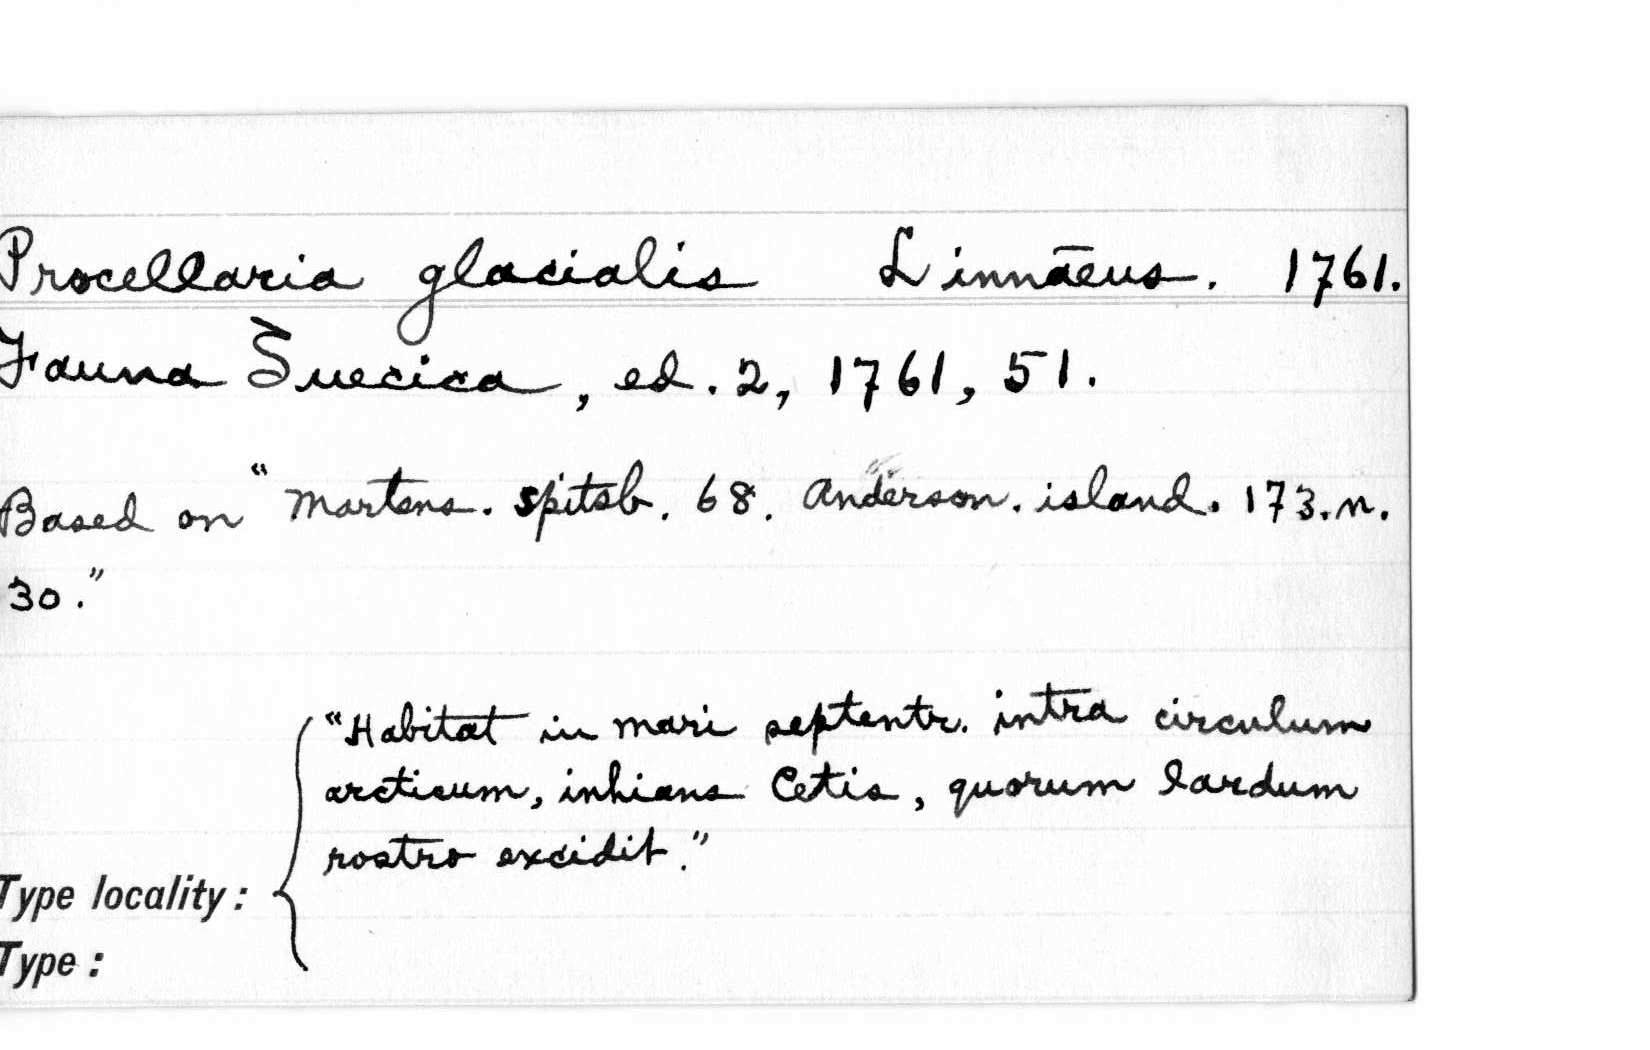 Procellaria glacialis Linnaeus. 1761.
Fauna Suecica, ed. 2, 1761, 51.
Based on "Martens. spitsb. 68. Anderson. island. 173. n.
30."
"Habitat in mari septentr. intra circulum
arcticum, inhians Cetis, quorum lardum
rostro excidit."
Type locality:
Type: